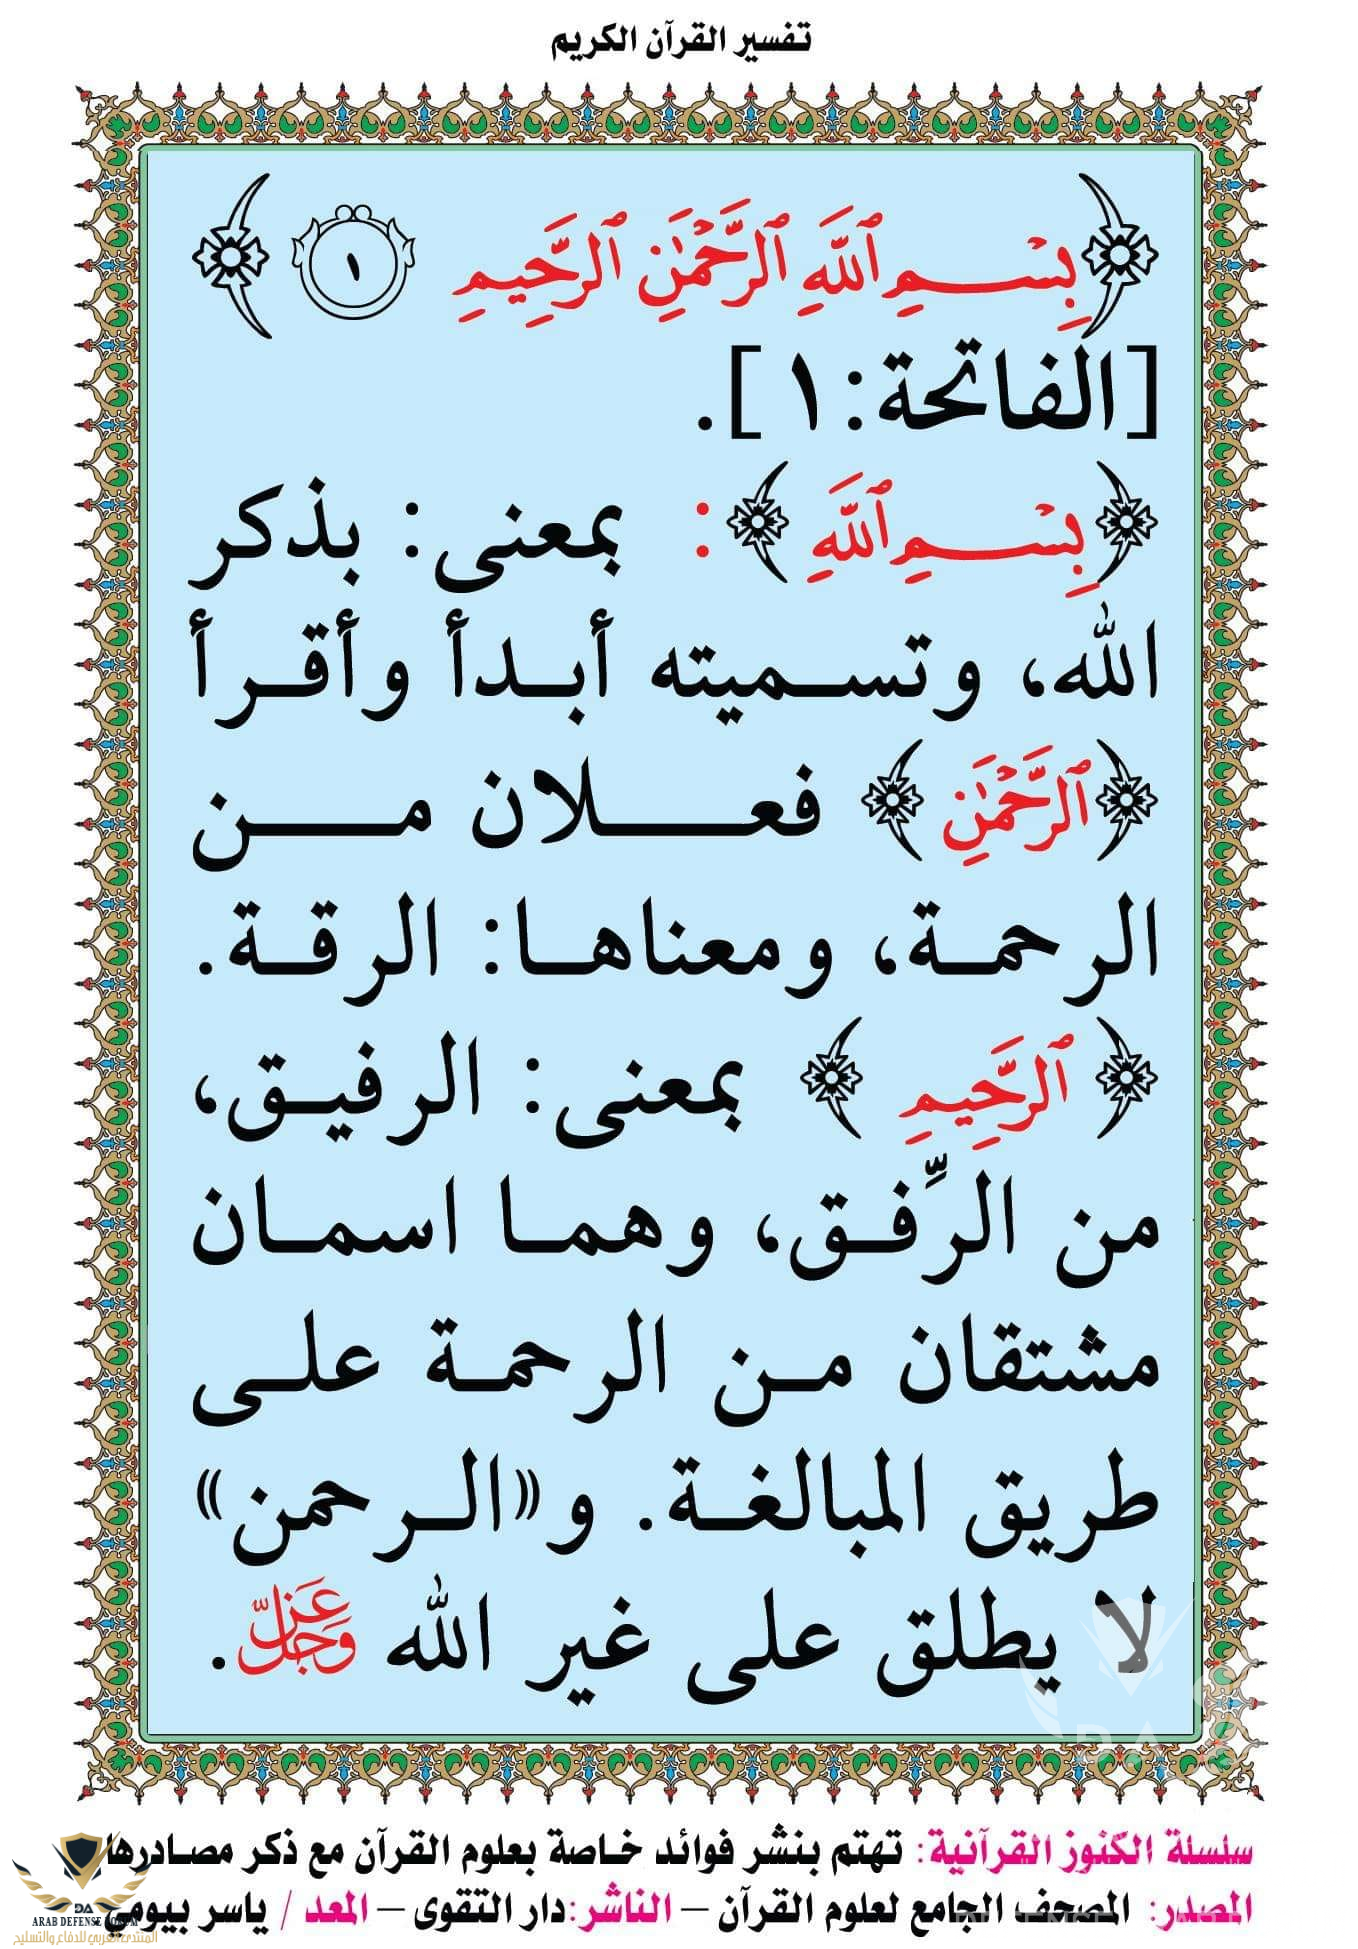 تفسير القرآن الكريم
﴿بِسْمِ ٱللَّهِ ٱلرَّحْمَٰنِ ٱلرَّحِيمِ ١﴾
[الفاتحة:١].
﴿بِسْمِ ٱللَّهِ﴾: بمعنى: بذكر
الله، وتسميته أبدأ وأقرأ
﴿ٱلرَّحْمَٰنِ﴾ فعلان من
الرحمة، ومعناها: الرقة.
﴿ٱلرَّحِيمِ﴾ بمعنى: الرفيق،
من الرِّفق، وهما اسمان
مشتقان من الرحمة على
طريق المبالغة. و«الرحمن»
لا يطلق على غير الله عَزَّ وَجَلَّ.
سلسلة الكنوز القرآنية: تهتم بنشر فوائد خاصة بعلوم القرآن مع ذكر مصادرها
المصدر: المصحف الجامع لعلوم القرآن – الناشر:دار التقوى – المعد / ياسر بيومي
DA
ARAB DEFENSE FORUM
المنتدى العربي للدفاع والتسليح
DA